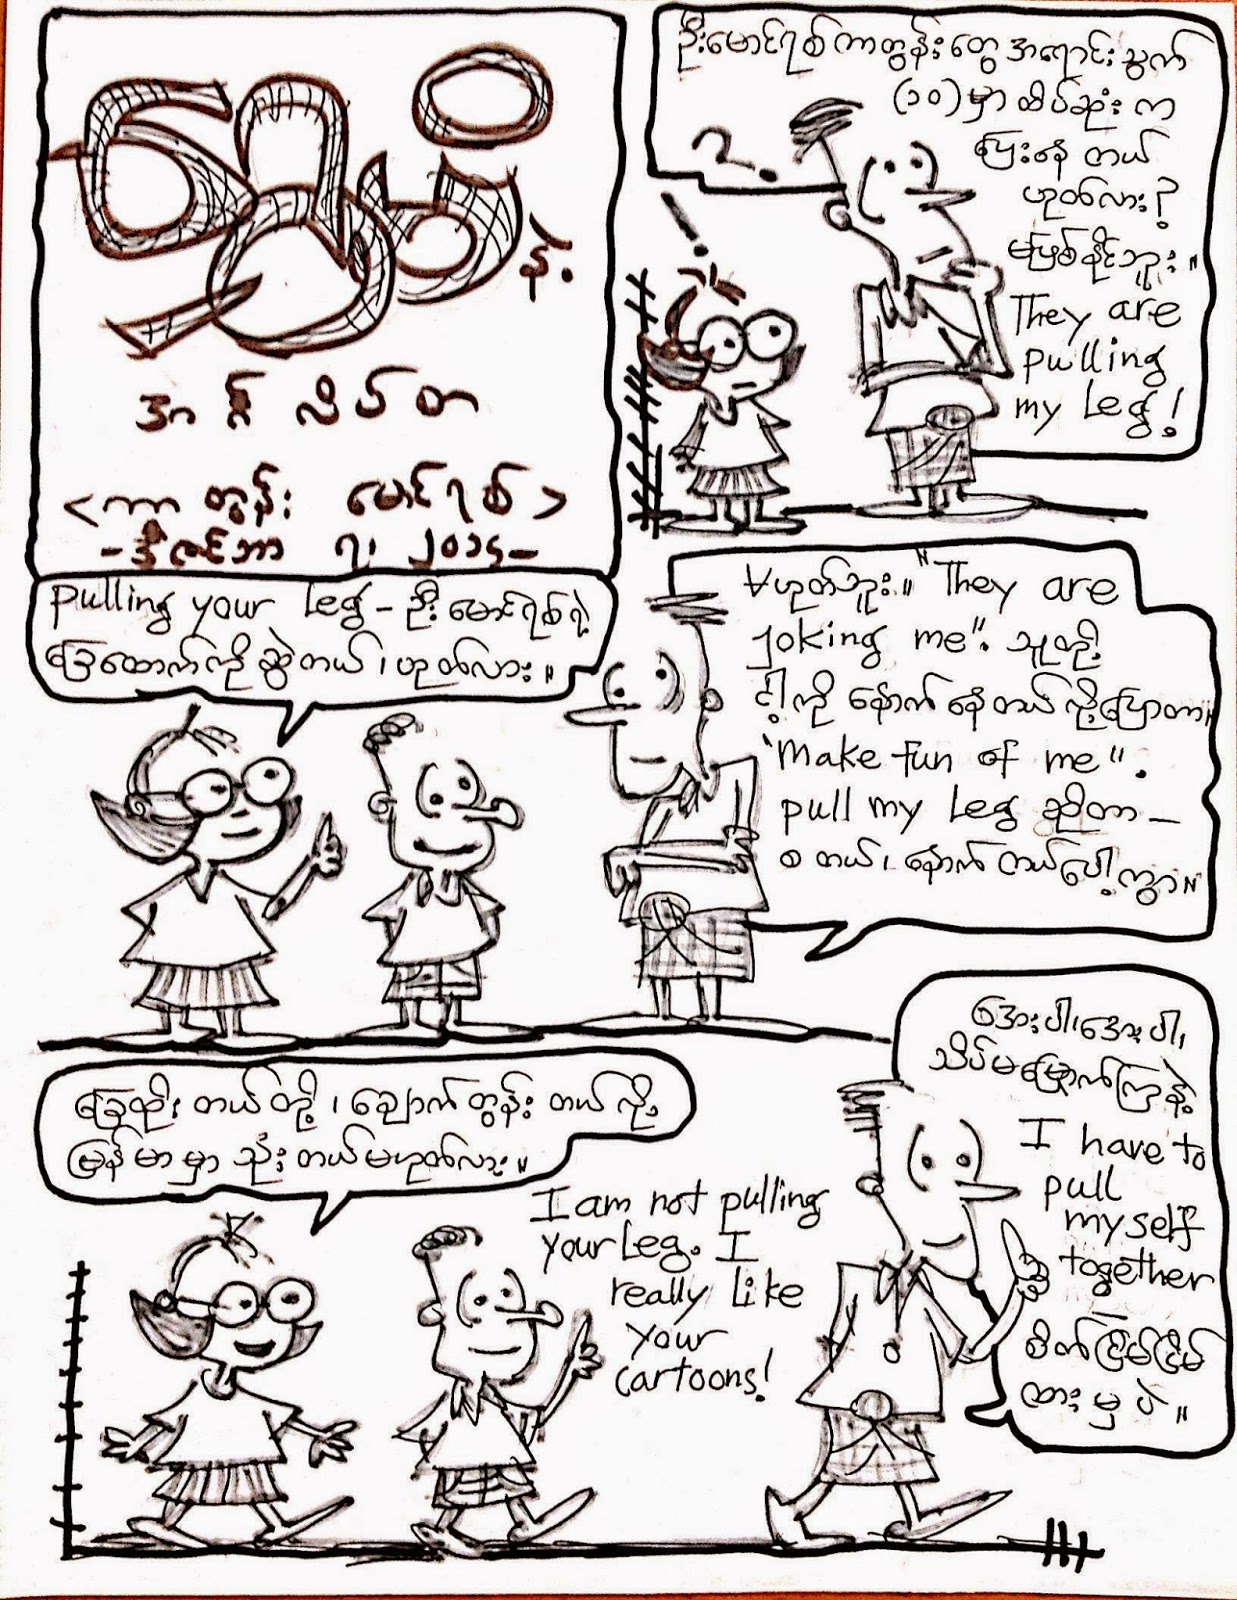 ရွှေပုံနဲ့
အင်္ဂလိပ်စာ
<ကာတွန်း မောင်ရစ်>
- ဒီဇင်ဘာ ၇၊ ၂၀၁၄ -
ဦးမောင်ရစ် ကာတွန်းတွေ အရောင်းသွက်
(၁၀) မှာ ထိပ်ဆုံး က
ပြေးနေ တယ်
ဟုတ်လား?
မဖြစ်နိုင်ဘူး။
They are
pulling
my leg!
?
!
pulling your leg - ဦးမောင်ရစ်ရဲ့
ခြေထောက်ကို ဆွဲတယ်၊ ဟုတ်လား။
မဟုတ်ဘူး။ "They are
joking me". သူတို့
ငါ့ကို နောက်နေတယ်လို့ပြောတာ။
"Make fun of me".
pull my leg ဆိုတာ -
စ တယ်၊ နောက်တယ်ပေါ့ကွာ။
ခြေထိုး တယ်တို့၊ ချောက်တွန်း တယ်လို့
မြန်မာမှာ သုံးတယ်မဟုတ်လား။
I am not pulling
your leg. I
really like
your
cartoons!
အေးပါ၊အေးပါ၊
သိပ်မမြှောက်ကြနဲ့
I have to
pull
myself
together
စိတ်ငြိမ်ငြိမ်
ထားမှ ပဲ။